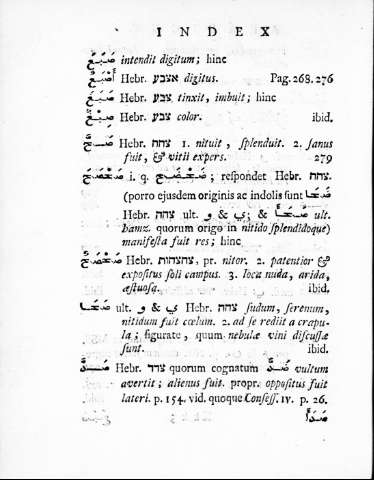 INDEX
صَبَعَ intendit digitum; hinc
أَصْبَعٌ Hebr. אצבע digitus. Pag. 268. 276
صَبَغَ Hebr. צבע tinxit, imbuit; hinc
صِبْغٌ Hebr. צבע color. ibid.
صَحَّ Hebr. צחח 1. nituit, splenduit. 2. sanus
fuit, & vitii expers. 279
i. q. ; respondet Hebr. צחח.
(porro ejusdem originis ac indolis sunt صَحَا
Hebr. צחה ult. و & ي; & ult.
hamz. quorum origo in nitido splendidoque)
manifesta fuit res; hinc
Hebr. צחצחות, pr. nitor. 2. patentior &
expositus soli campus. 3. loca nuda, arida,
æstuosa. ibid.
صَحَا ult. و & ي Hebr. צחה sudum, serenum,
nitidum fuit cœlum. 2. ad se rediit a crapu-
la; figurate, quum nebulæ vini discussæ
sunt. ibid.
صَدَّ Hebr. צדד quorum cognatum vultum
avertit; alienus fuit. propr. oppositus fuit
lateri. p. 154. vid. quoque Consess. IV. p. 26.
صَدَأَ